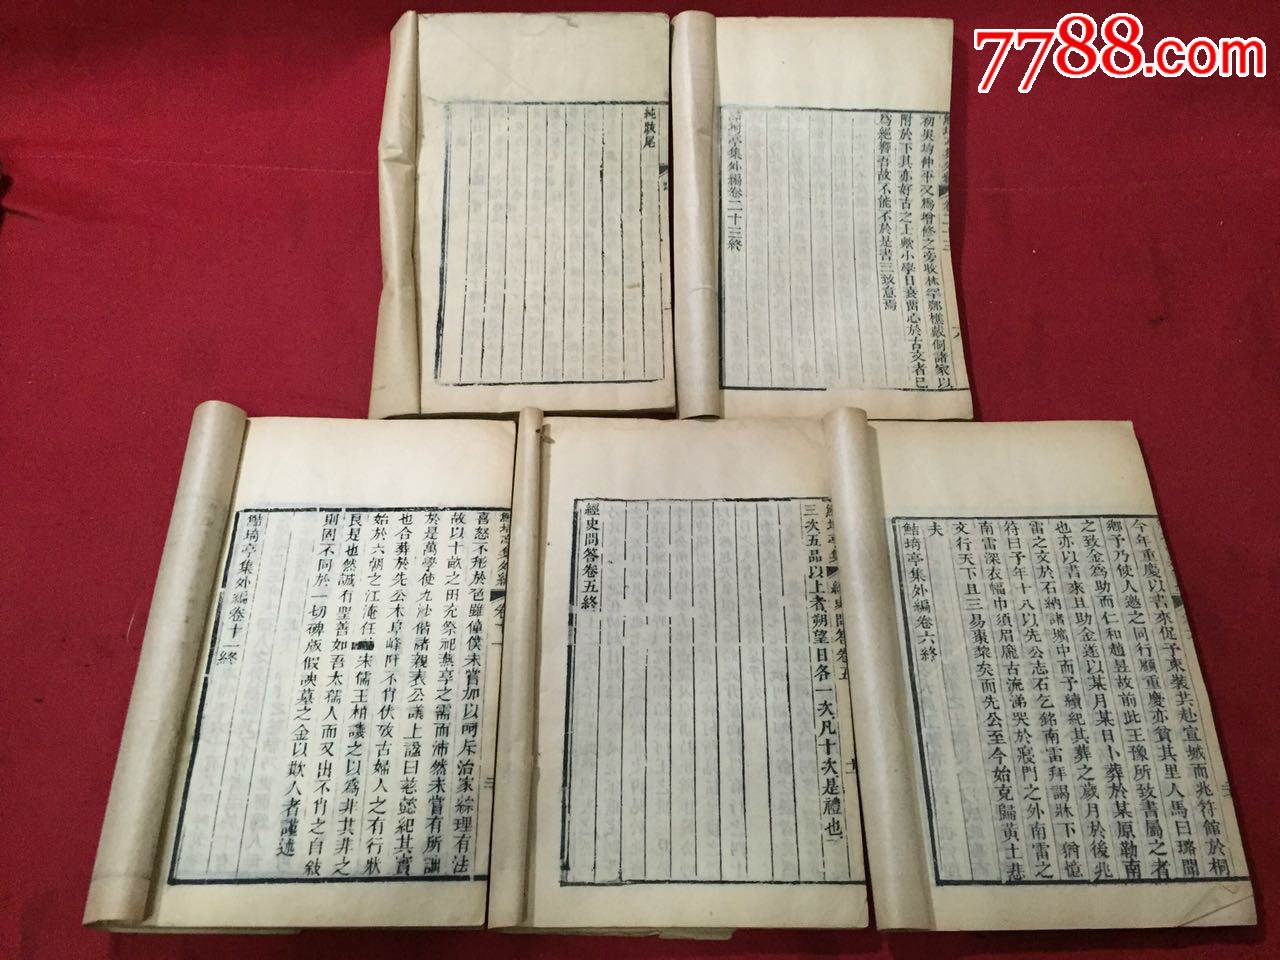 7788.com
純跋尾
鮚埼亭集外編
初吳埼仲平又爲增修之旁取林罕鄭樵戴侗諸家以
附於下其亦好古之士歟小學日衰留心於古文者已
爲絕響吾故不能不於是書三致意焉
鮚埼亭集外編卷二十三終
鮚埼亭集外編 卷十一
喜怒不形於色雖僮僕未嘗加以呵斥治家綜理有法
故以十畝之田充祭祀燕享之需而沛然未嘗有所詘
於是萬學使九沙偕諸親表公議上諡曰慈懿紀其實
也合葬於先公木阜峰阡不肖伏攷古婦人之有行狀
始於六朝之江淹任 宋儒王柏譏之以爲非其非之
良是也然誠有聖善如吾太孺人而又出不肖之自敘
則固不同於一切碑版假諛墓之金以欺人者謹述
鮚埼亭集外編卷十一終
鮚埼亭集 經史問答卷五
三次五品以上者朔望日各一次凡十次是禮也
經史問答卷五終
今年重慶以書來促予東裝共赴宣城而兆符館於桐
鄉予乃使人邀之同行顧重慶亦貧其里人馬曰璐聞
之致金爲助而仁和趙昱故前此王豫所致書屬之者
也亦以書來且助金遂以某月某日卜葬於某原勒南
雷之文於石納諸壙中而予續紀其葬之歲月於後兆
符曰予年十八以先公志石乞銘南雷拜謁牀下猶憶
南雷深衣幅巾須眉龐古流涕哭於寢門之外南雷之
文行天下且三易棗棃矣而先公至今始克歸黃土悲
夫
鮚埼亭集外編卷六終